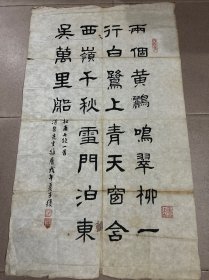 兩個黃鸝鳴翠柳一
行白鷺上青天窗含
西嶺千秋雪門泊東
吳萬里船
杜甫七絕一首